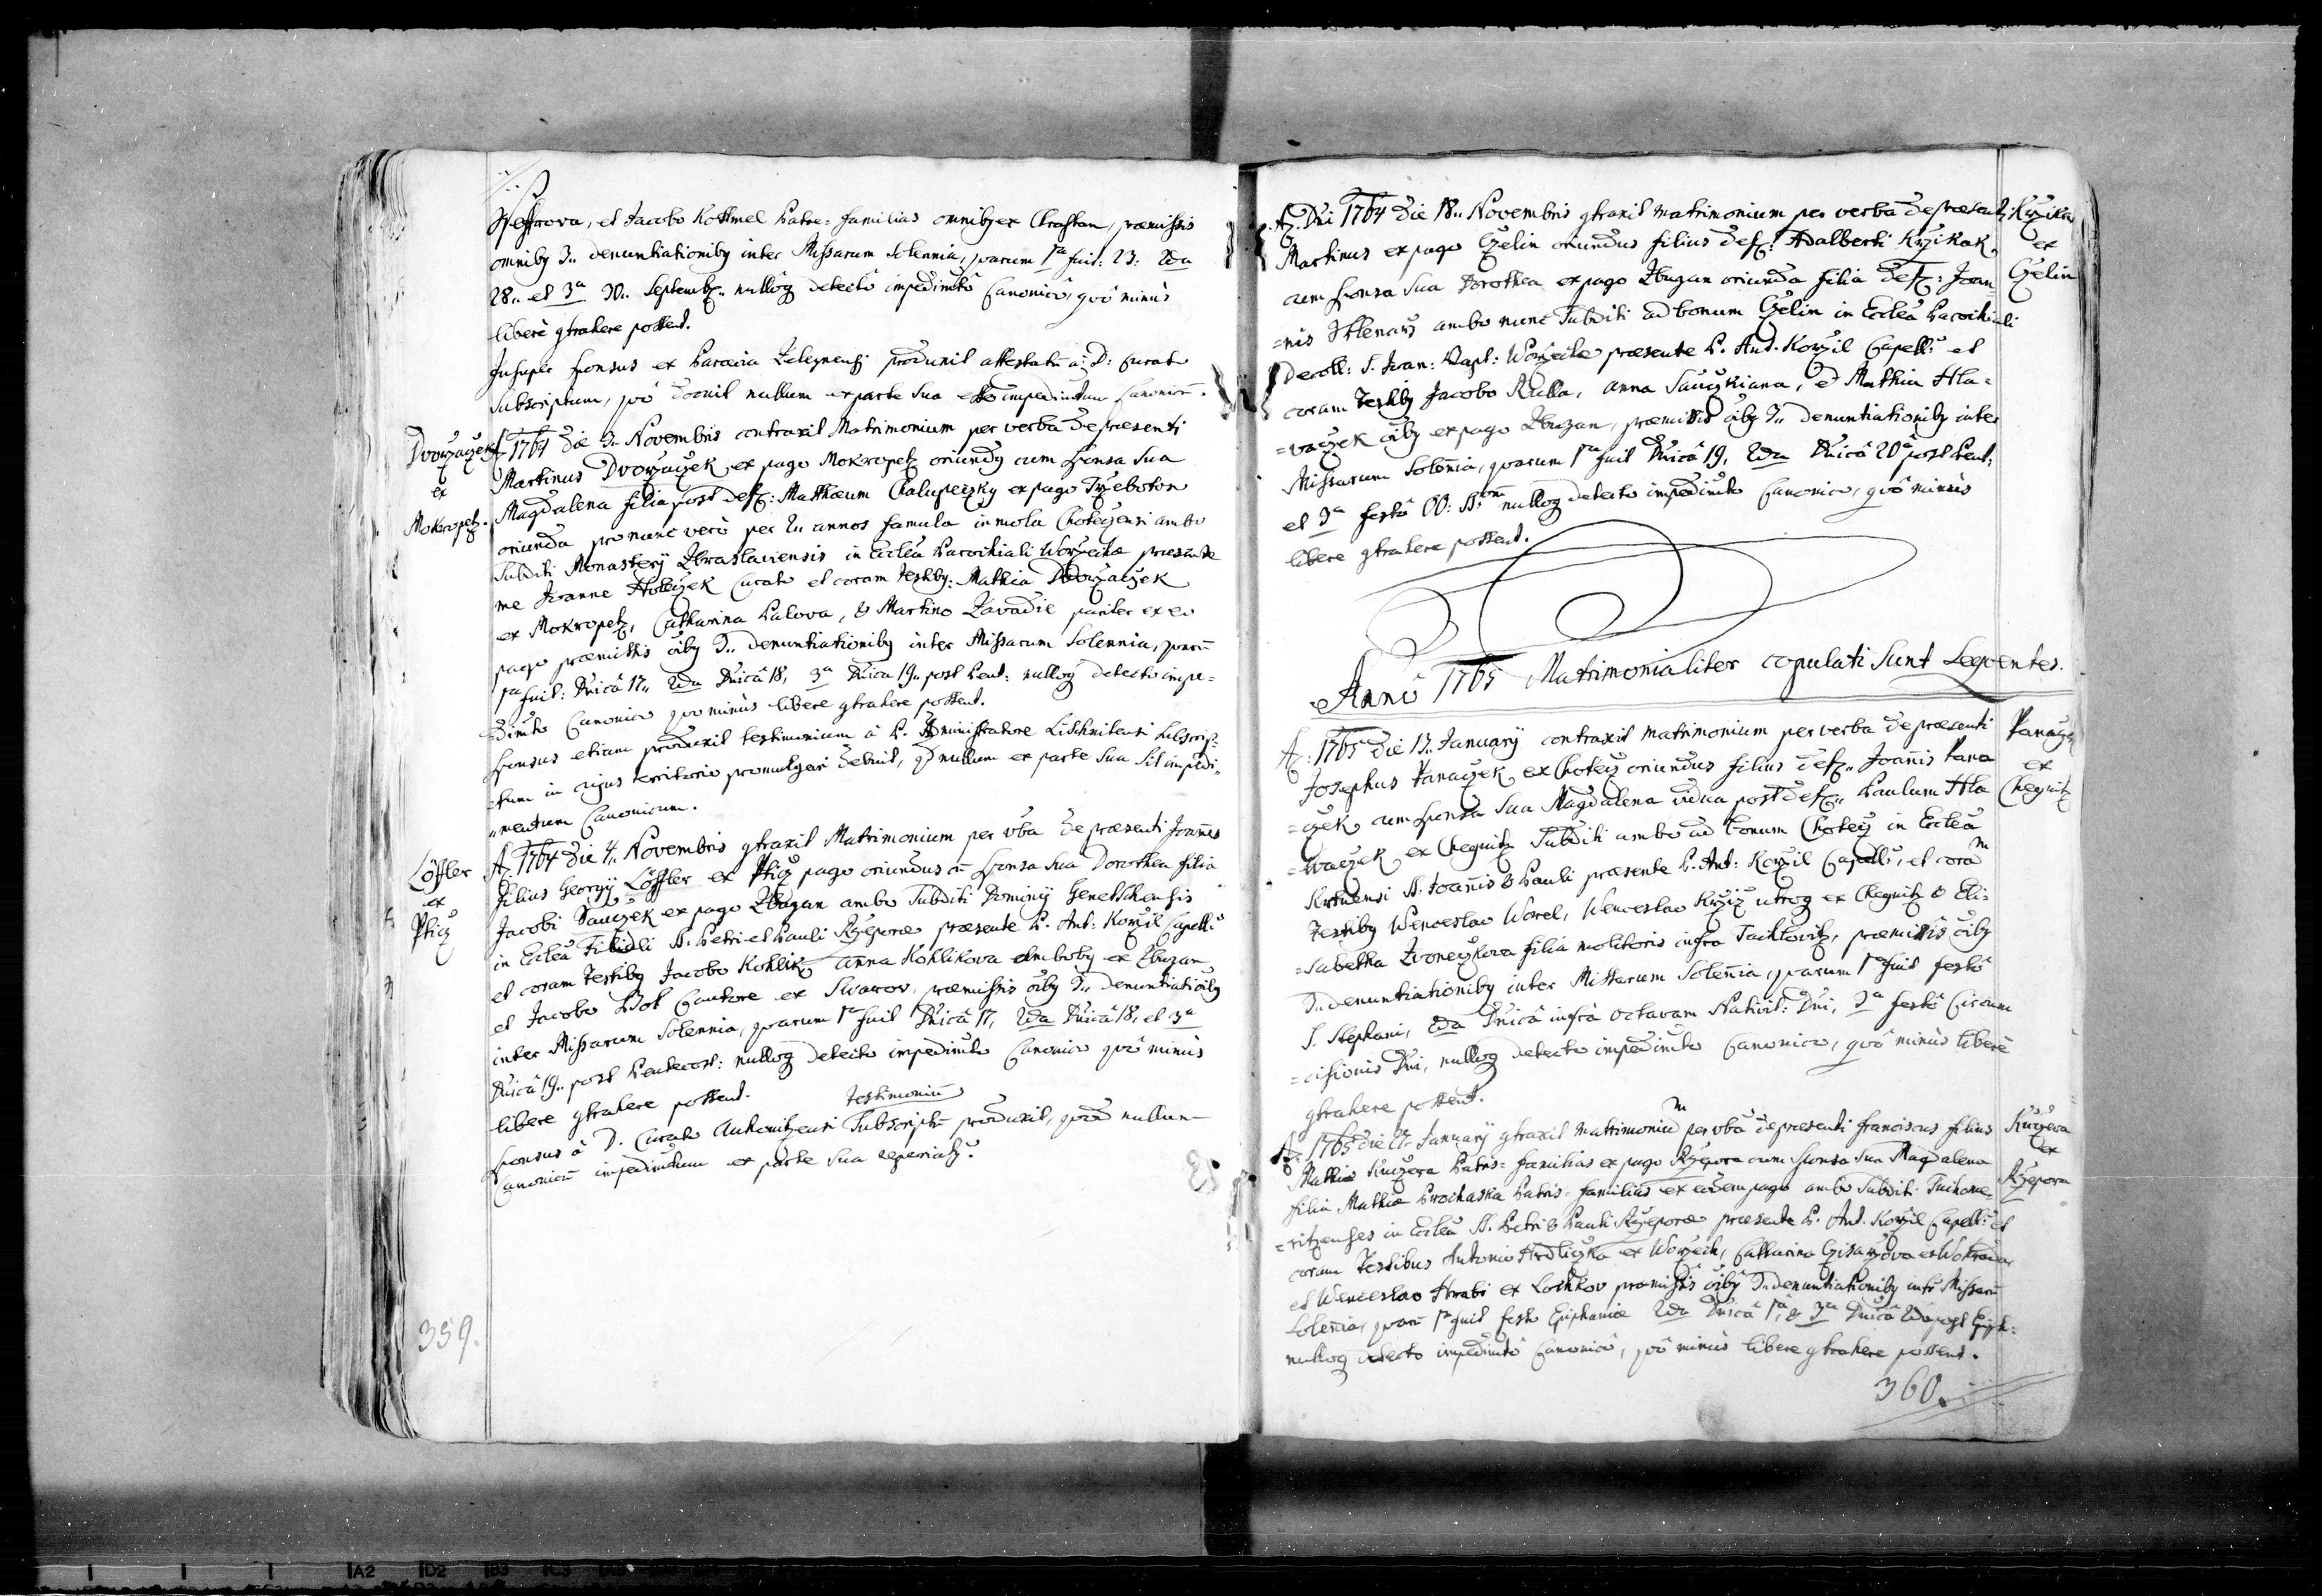 et Jacobo Kottmel Patre-familias omnibus ex Chrastan, praemissis
omnibq 3.. denuntiationibq inter Missarum Solennia, quarum 1ma fuit: 23: 2da
28.. et 3a 30.. Septembr.. nulloq detectô impedimtô Canonicô, quô minùs
liberè gtrahere possent.
Insuper sponsus ex Paraecia produxit attestatū à D: Curato
Subscriptum, quô docuit nullum ex parte Sua esse impedimtum Canonicū.
Dvorzaczek
ex
Mokropetz.
A. 1764 Die 3.. Novembris contraxit Matrimonium per verba de praesenti
Martinus Dvorzaczek ex pago Mokropetz oriundq cum sponsa Sua
Magdalena filia post def: Mathaeum Chalupeczky ex pago Trzeboton
oriunda pro nunc verò per 2.. annos famula in mola Choteczensi ambo
Subditi Monasterij Zbraslaviensis in Ecclēa Parochiali Worzechae praesente
me Joanne Holeczek Curato et coram testibq: Mathia Dworzaczek
ex Mokropetz, Catharina Palova, & Martino Zavadil pariter ex eo
pago praemissis ōibq 3.. denuntiationibq inter Missarum Solennia, quarū
1ma fuit: Dnicâ 17.. 2da Dnicâ 18, 3a Dnica 19.. post Pent: nulloq detecto impe=
=dimto Canonico quo minùs libere gtrahere possent.
Sponsus etiam produxit testimonium à P. Administratore Lischnitensi subscrip=
=tum in cujus territorio promulgari debuit, qd nullum ex parte Sua sit impedi=
=mentum Canonicum.
Löffler
ex
Pticz
A. 1764 Die 4.. Novembris gtraxit Matrimonium per vba de praesenti Joannes
filius Georgij Löffler ex Pticz pago oriundus cū sponsa Sua Dorothea filia
Jacobi Sauczek ex pago Zbuzan ambo Subditi Dominij Genetschensis
in Ecclēa Filiali SS. Petri et Pauli Rzeporae praesente P. Ant: Korzil Capell:
et coram testibq Jacobo Kohlik, anna Kohlikova ambobq ex Zbuzan
et Jacobo Cantore ex Swarov, praemissis ōibq 3.. denuntiatōibq
inter Missarum Solennia, quarum 1ma fuit Dnicâ 17, 2da Dnicâ 18, et 3a
Dnicâ 19.. post Pentecost: nulloq detecto impedimto Canonico quô minùs
libere gtrahere possent.
testimoniū
Sponsus à D. Curato Auhonitzensi Subscriptū produxit, quod nullum
Canonicū impedimtum ex parte Sua reperiatq.
359.
A. Dni 1764 Die 18.. Novembris gtraxit Matrimonium per verba de praesenti
Krzikak
ex
Czelin
Martinus ex pago Czelin oriundus filius def: Adalberti Krzikak
cum sponsa Sua Dorothea ex pago Zbuzan oriunda filia def: Joan=
=nis Sklenarz ambo nunc Subditi ad bonum Czelin in Ecclēa Parochiali
Decoll: S. Joan: Bapt: Worzechae praesente P. Ant. Korzil Capell: et
coram testibq Jacobo Kulla, anna Sauczkiana, et Mathia Hla=
=vaczek ōibq ex pago Zbuzan, praemissis ōibq 3.. denuntiationibq inter
Missarum Solēnia, quarum 1ma fuit Dnicâ 19, 2da Dnicâ 20â post Pent:
et 3a festô OO: SS. nulloq detecto impedimto Canonico, quô minùs
libere gtrahere possent.
Annô 1765 Matrimonialiter copulati Sunt Seqventes.
Panacz
ex
Chegnitz
A: 1765 Die 13.. Januarij contraxit Matrimonium per verba de praesenti
Josephus Panaczek ex Chotecz oriundus filius def.. Joānis Pana
=czek cum sponsa Sua Magdalena vidua post def.. Paulum Hla
=waczek ex Chegnitz Subditi ambo ad bonum Chotecz in Ecclēa
SS. Joānis & Pauli praesente P. Ant: Korzil Capell:, et coram
testibq Wenceslao Worel, Wenceslao Krziz utroq ex Chegnitz & Eli=
=sabetha Zvoneczkova filia molitoris infra Tachlovitz, praemissis ōibq
3.. denuntiationibq inter Missarum Solēnia, quarum 1ma fuit festô
S. Stephani, 2da Dnicâ infrà octavam Nativit: Dni, 3a festô Circum
=cisionis Dni, nulloq detecto impedimto Canonico, quô minùs liberè
gtrahere possent.
Kuczera
ex
Rzepora
A: 1765 die Januarij gtraxit Matrimoniu per vba de praesenti franciscus filius
Mathiae Kuczera Patris=familias ex pago Rzepora cum sponsa Sua Magdalena
filia Mathiae Prochaska Patris=familias ex eodem pago ambo Subditi Tuchome=
=ritzenses in Ecclēa SS. Petri & Pauli Rzeporae praesente P. Ant. Korzil Capell: et
coram testibus Antonio Hrdliczka ex Worzech, Catharina Czisarzova
et Wenceslao Hrabi ex Lochkov praemissis ōibq 3.. denuntiationibq intr Missarū
Solēnia, quarū 1ma fuit festo Epiphaniae 2da Dnicâ 1â, & 3a Dnicâ 2da post Epiph:
nulloq detecto impedimtô Canonicô, quô minùs libere gtrahere possent.
360.